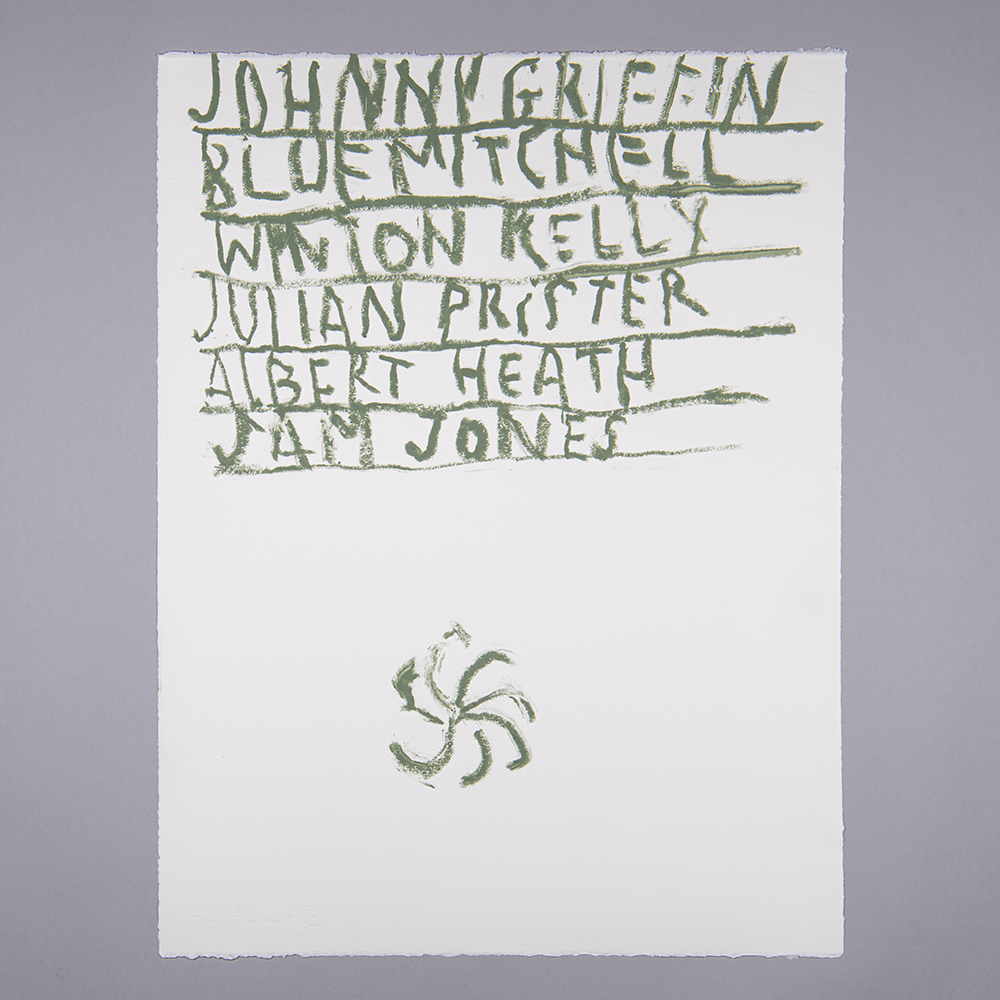 JOHNNY GRIFFIN
BLUE MITCHELL
WINTON KELLY
JULIAN PRISTER
ALBERT HEATH
SAM JONES